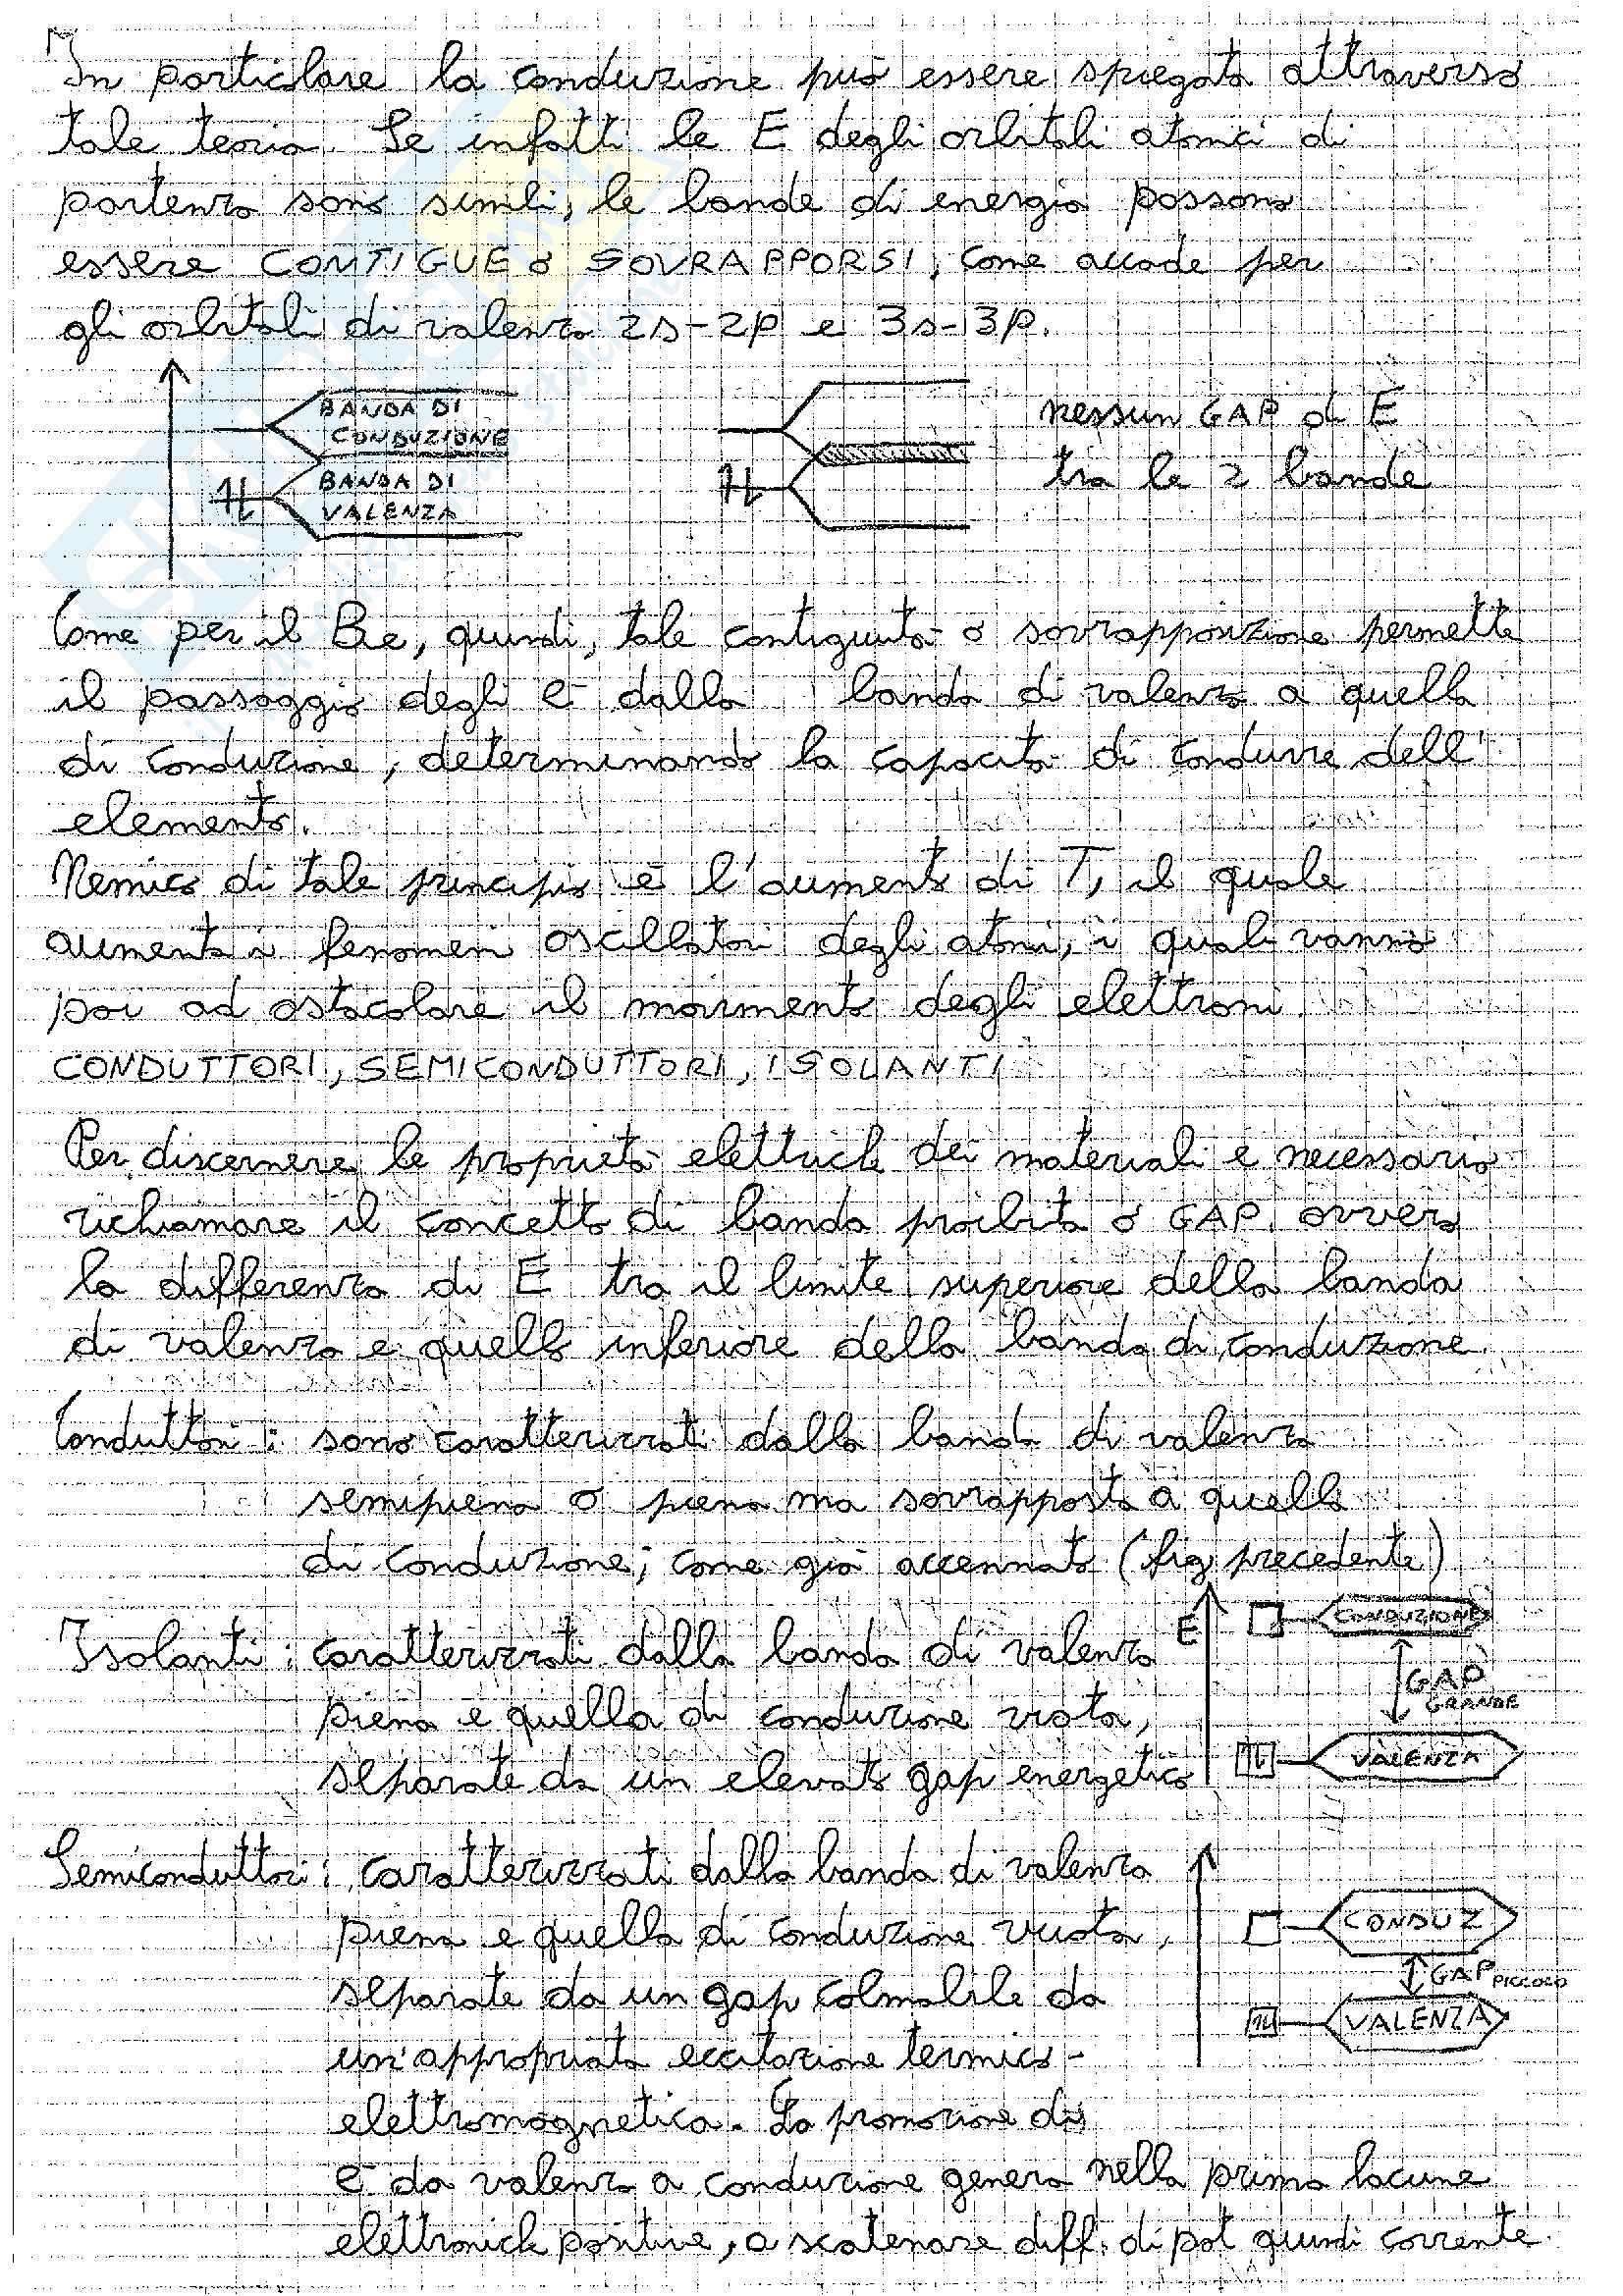 In particolare la conduzione può essere spiegata attraverso
tale teoria. Se infatti le E degli orbitali atomici di
partenza sono simili, le bande di energia possono
essere CONTIGUE o SOVRAPPORSI, come accade per
gli orbitali di valenza 2s-2p e 3s-3p.
BANDA DI
CONDUZIONE
BANDA DI
VALENZA
nessun GAP di E
tra le 2 bande
Come per il Be, quindi, tale contiguità o sovrapposizione permette
il passaggio degli e⁻ dalla banda di valenza a quella
di conduzione, determinando la capacità di condurre dell'
elemento.
Nemico di tale principio è l'aumento di T, il quale
aumenta i fenomeni oscillatori degli atomi, i quali vanno
poi ad ostacolare il movimento degli elettroni.
CONDUTTORI, SEMICONDUTTORI, ISOLANTI
Per discernere le proprietà elettriche dei materiali è necessario
richiamare il concetto di banda proibita o GAP, ovvero
la differenza di E tra il limite superiore della banda
di valenza e quello inferiore della banda di conduzione.
Conduttori: sono caratterizzati dalla banda di valenza
semipiena o piena ma sovrapposta a quella
di conduzione, come già accennato (fig precedente)
Isolanti: caratterizzati dalla banda di valenza
piena e quella di conduzione vuota,
separate da un elevato gap energetico
E
CONDUZIONE
GAP
GRANDE
VALENZA
Semiconduttori: caratterizzati dalla banda di valenza
piena e quella di conduzione vuota,
separate da un gap colmabile da
un'appropriata eccitazione termico-
elettromagnetica. La promozione di
e⁻ da valenza a conduzione genera nella prima lacune
elettroniche positive, a scatenare diff. di pot quindi corrente.
CONDUZ
GAP PICCOLO
VALENZA